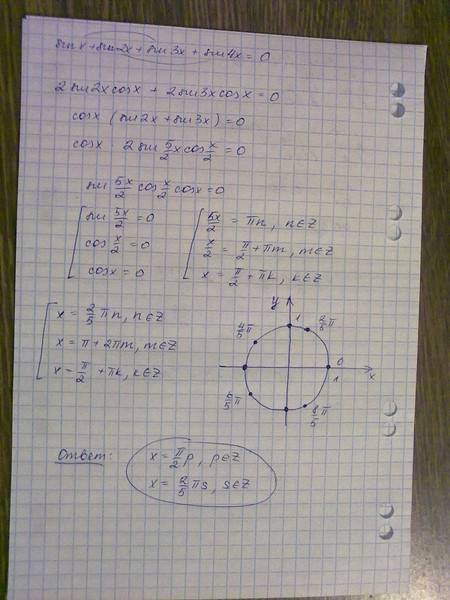 sin x + sin 2x + sin 3x + sin 4x = 0
2 sin 2x cos x + 2 sin 3x cos x = 0
cos x (sin 2x + sin 3x) = 0
cos x · 2 sin 5/2 x cos x/2 = 0
sin 5x/2 cos x/2 cos x = 0
sin 5x/2 = 0
cos x/2 = 0
cos x = 0
5x/2 = πn, n∈Z
x/2 = π/2 + πm, m∈Z
x = π/2 + πk, k∈Z
x = 2/5 πn, n∈Z
x = π + 2πm, m∈Z
x = π/2 + πk, k∈Z
y
1
2/5 π
4/5 π
0
1
x
6/5 π
8/5 π
Ответ:
x = π/2 p, p∈Z
x = 2/5 πs, s∈Z